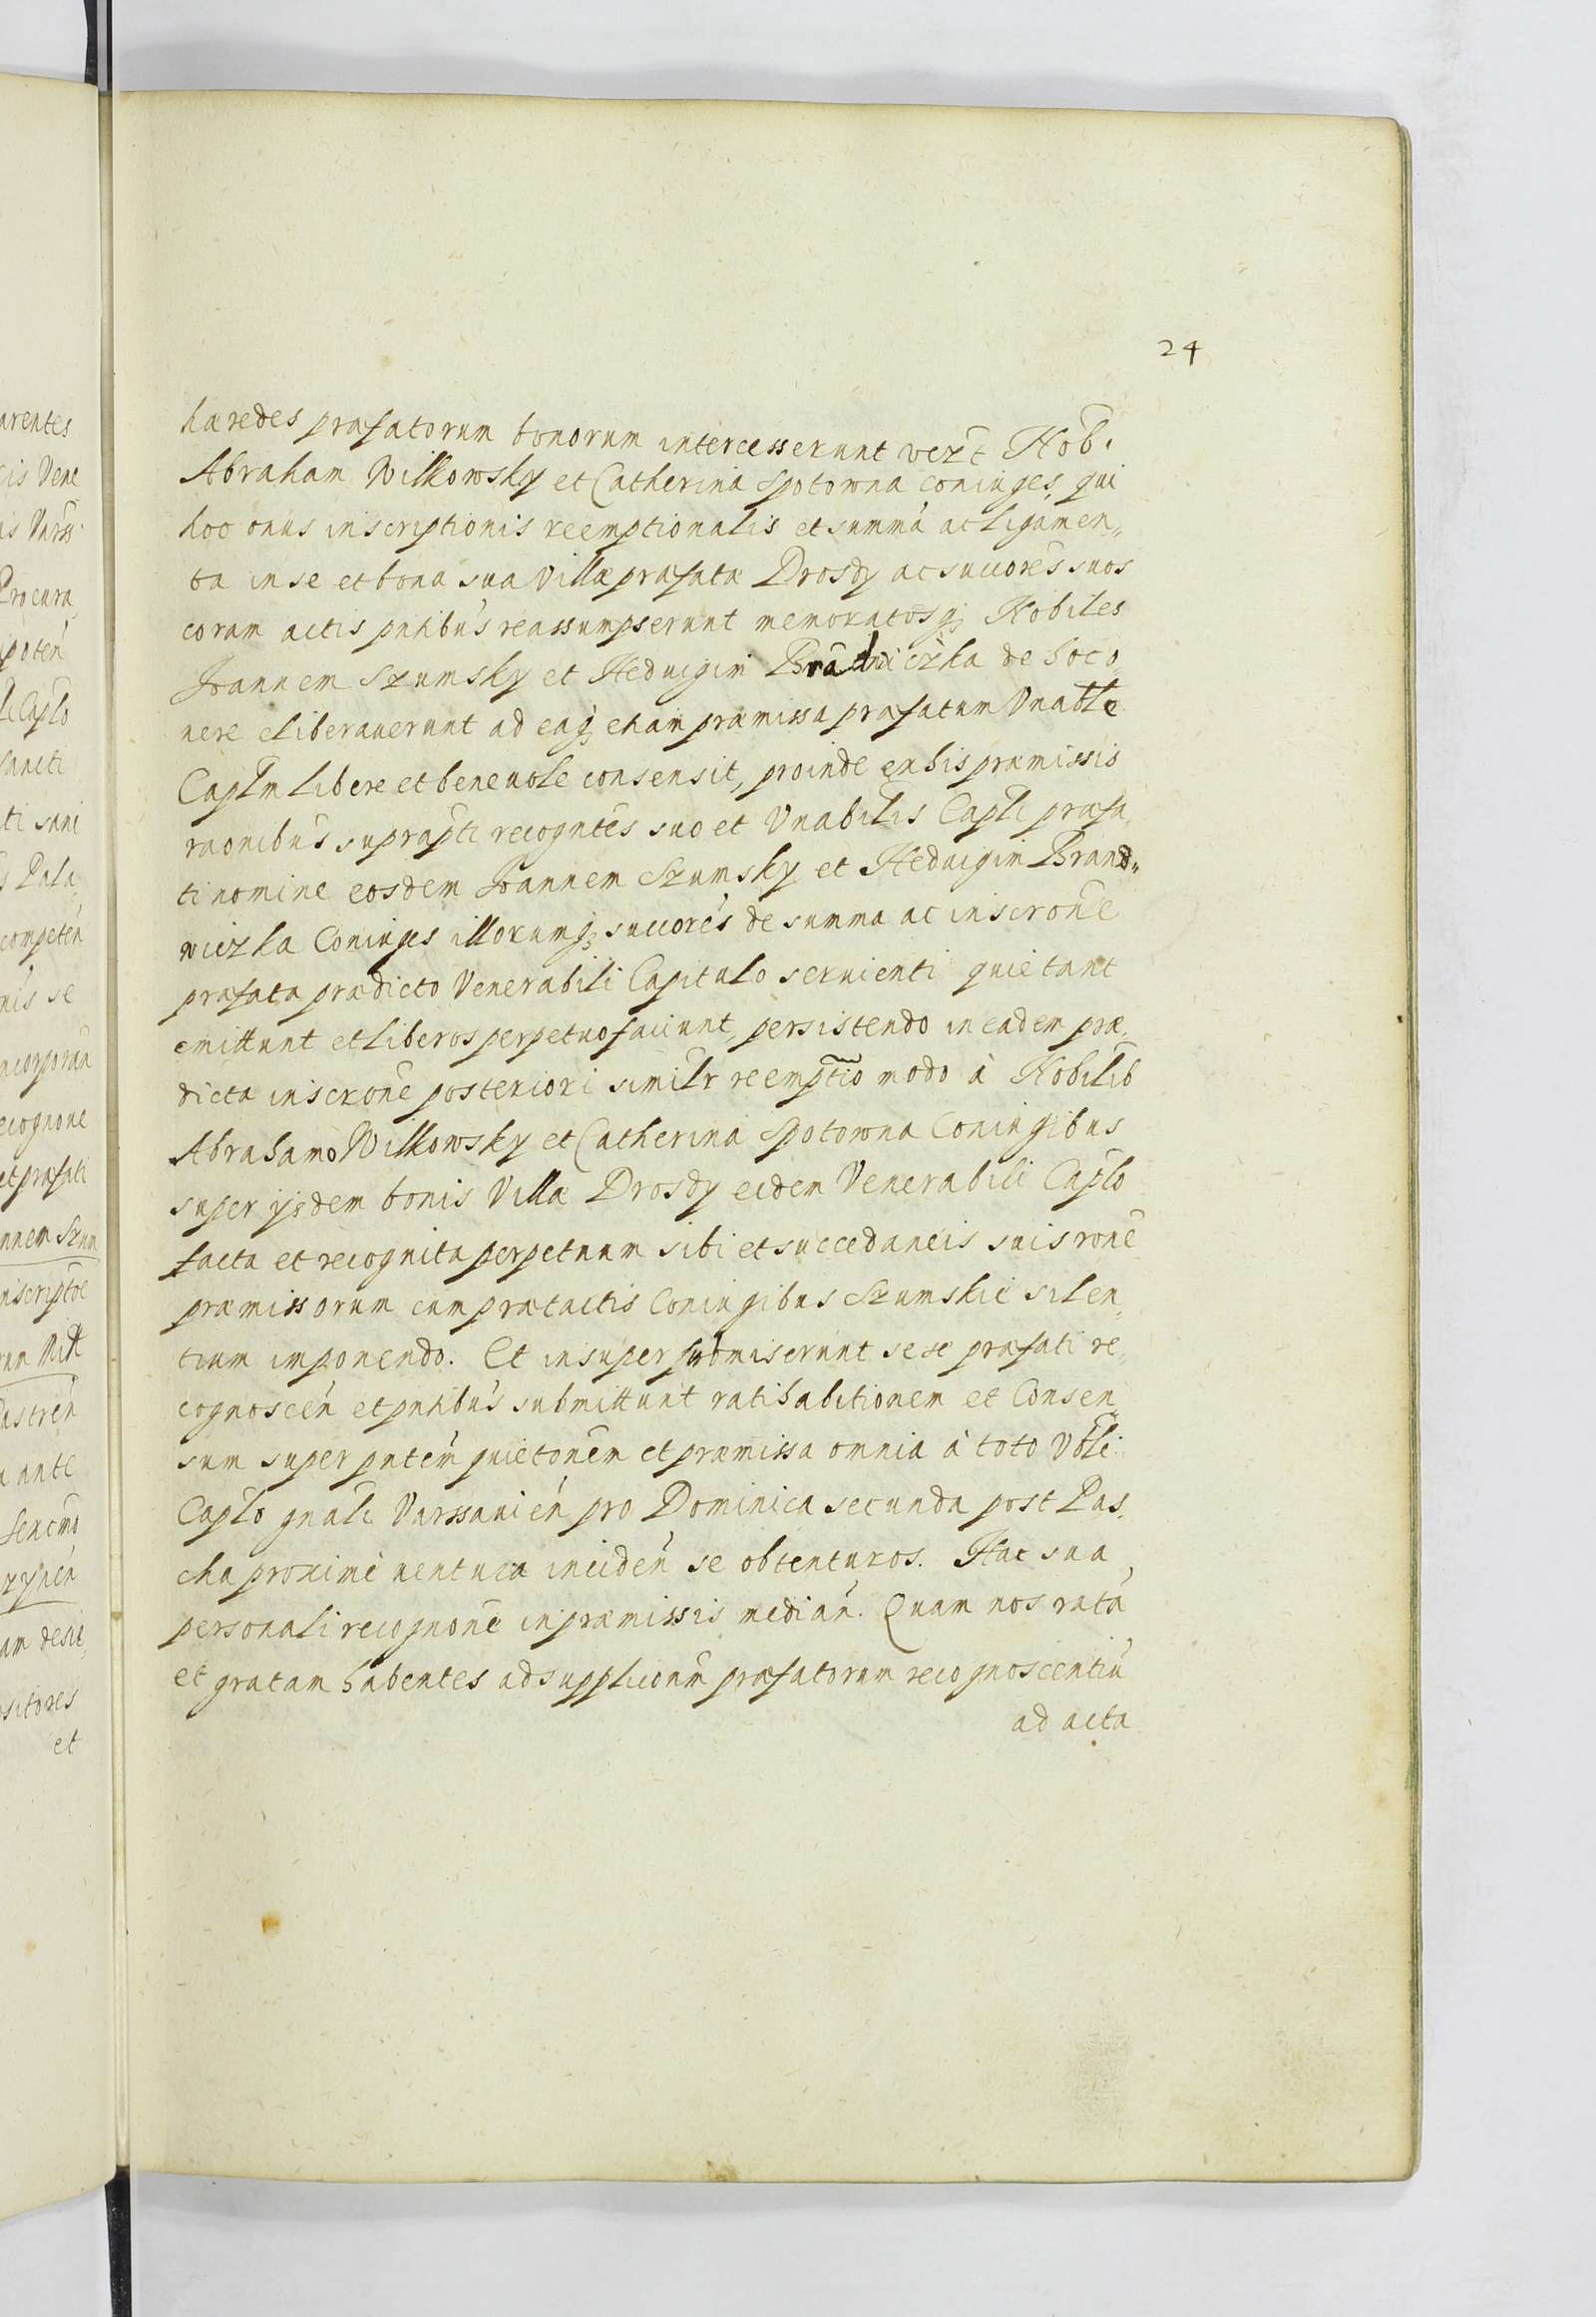 24
haeredes praefatorum bonorum intercesserunt verẽ Nob.
Abraham Wilkowsky et Catherina Spotowna coniuges, qui
hoc onus inscriptionis reemptionalis et summã ac ligamen„
ta in se et bona sua Villae praefatae Drosdy ac succorẽs suos
coram actis pntibus̃ reassumpserunt memoratosq; Nobiles
Joannem Szumsky et Heduigim Brãdwiczka de hoc o„
nere eliberauerunt ad eaq; etiam praemissa praefatum Vnable
Caplm libere et beneuole consensit, proinde ex his praemissis
raonibus̃ suprapti recogntes̃ suo et Vnabilis Capli praefa„
ti nomine eosdem Joannem Szumsky et Heduigim Brand„
wiczka Coniuges illorumq; succorẽs de summa ac inscronẽ
praefata praedicto Venerabili Capitulo seruienti quietant
emittunt et liberos perpetuo faciunt, persistendo in eadem prae„
dicta inscronẽ posteriori similr reemptio modo à Nobilib
Abrahamo Wilkowsky et Catherina Spotowna Coniugibus
super ijsdem bonis Villae Drosdy eidem Venerabili Caplo
facta et recognita perpetuum sibi et succedaneis suis ronẽ
praemissorum cum praetactis Coniugibus Szumskie silen„
tium imponendo. Et insuper submiserunt sese praefati re„
cognoscen̄ et pntibus̃ submittunt ratihabitionem et Consen„
sum super pntem̃ quietonẽm et praemissa omnia à toto Vbli
Caplo gnali Varssauien̄ pro Dominica secunda post Pas„
cha proximè uentura inciden̄ se obtenturos. Hac sua
personali recognonẽ in praemissis median̄. Quam nos ratã
et gratam habentes ad supplicoñm praefatorum recognoscentiũ
ad acta